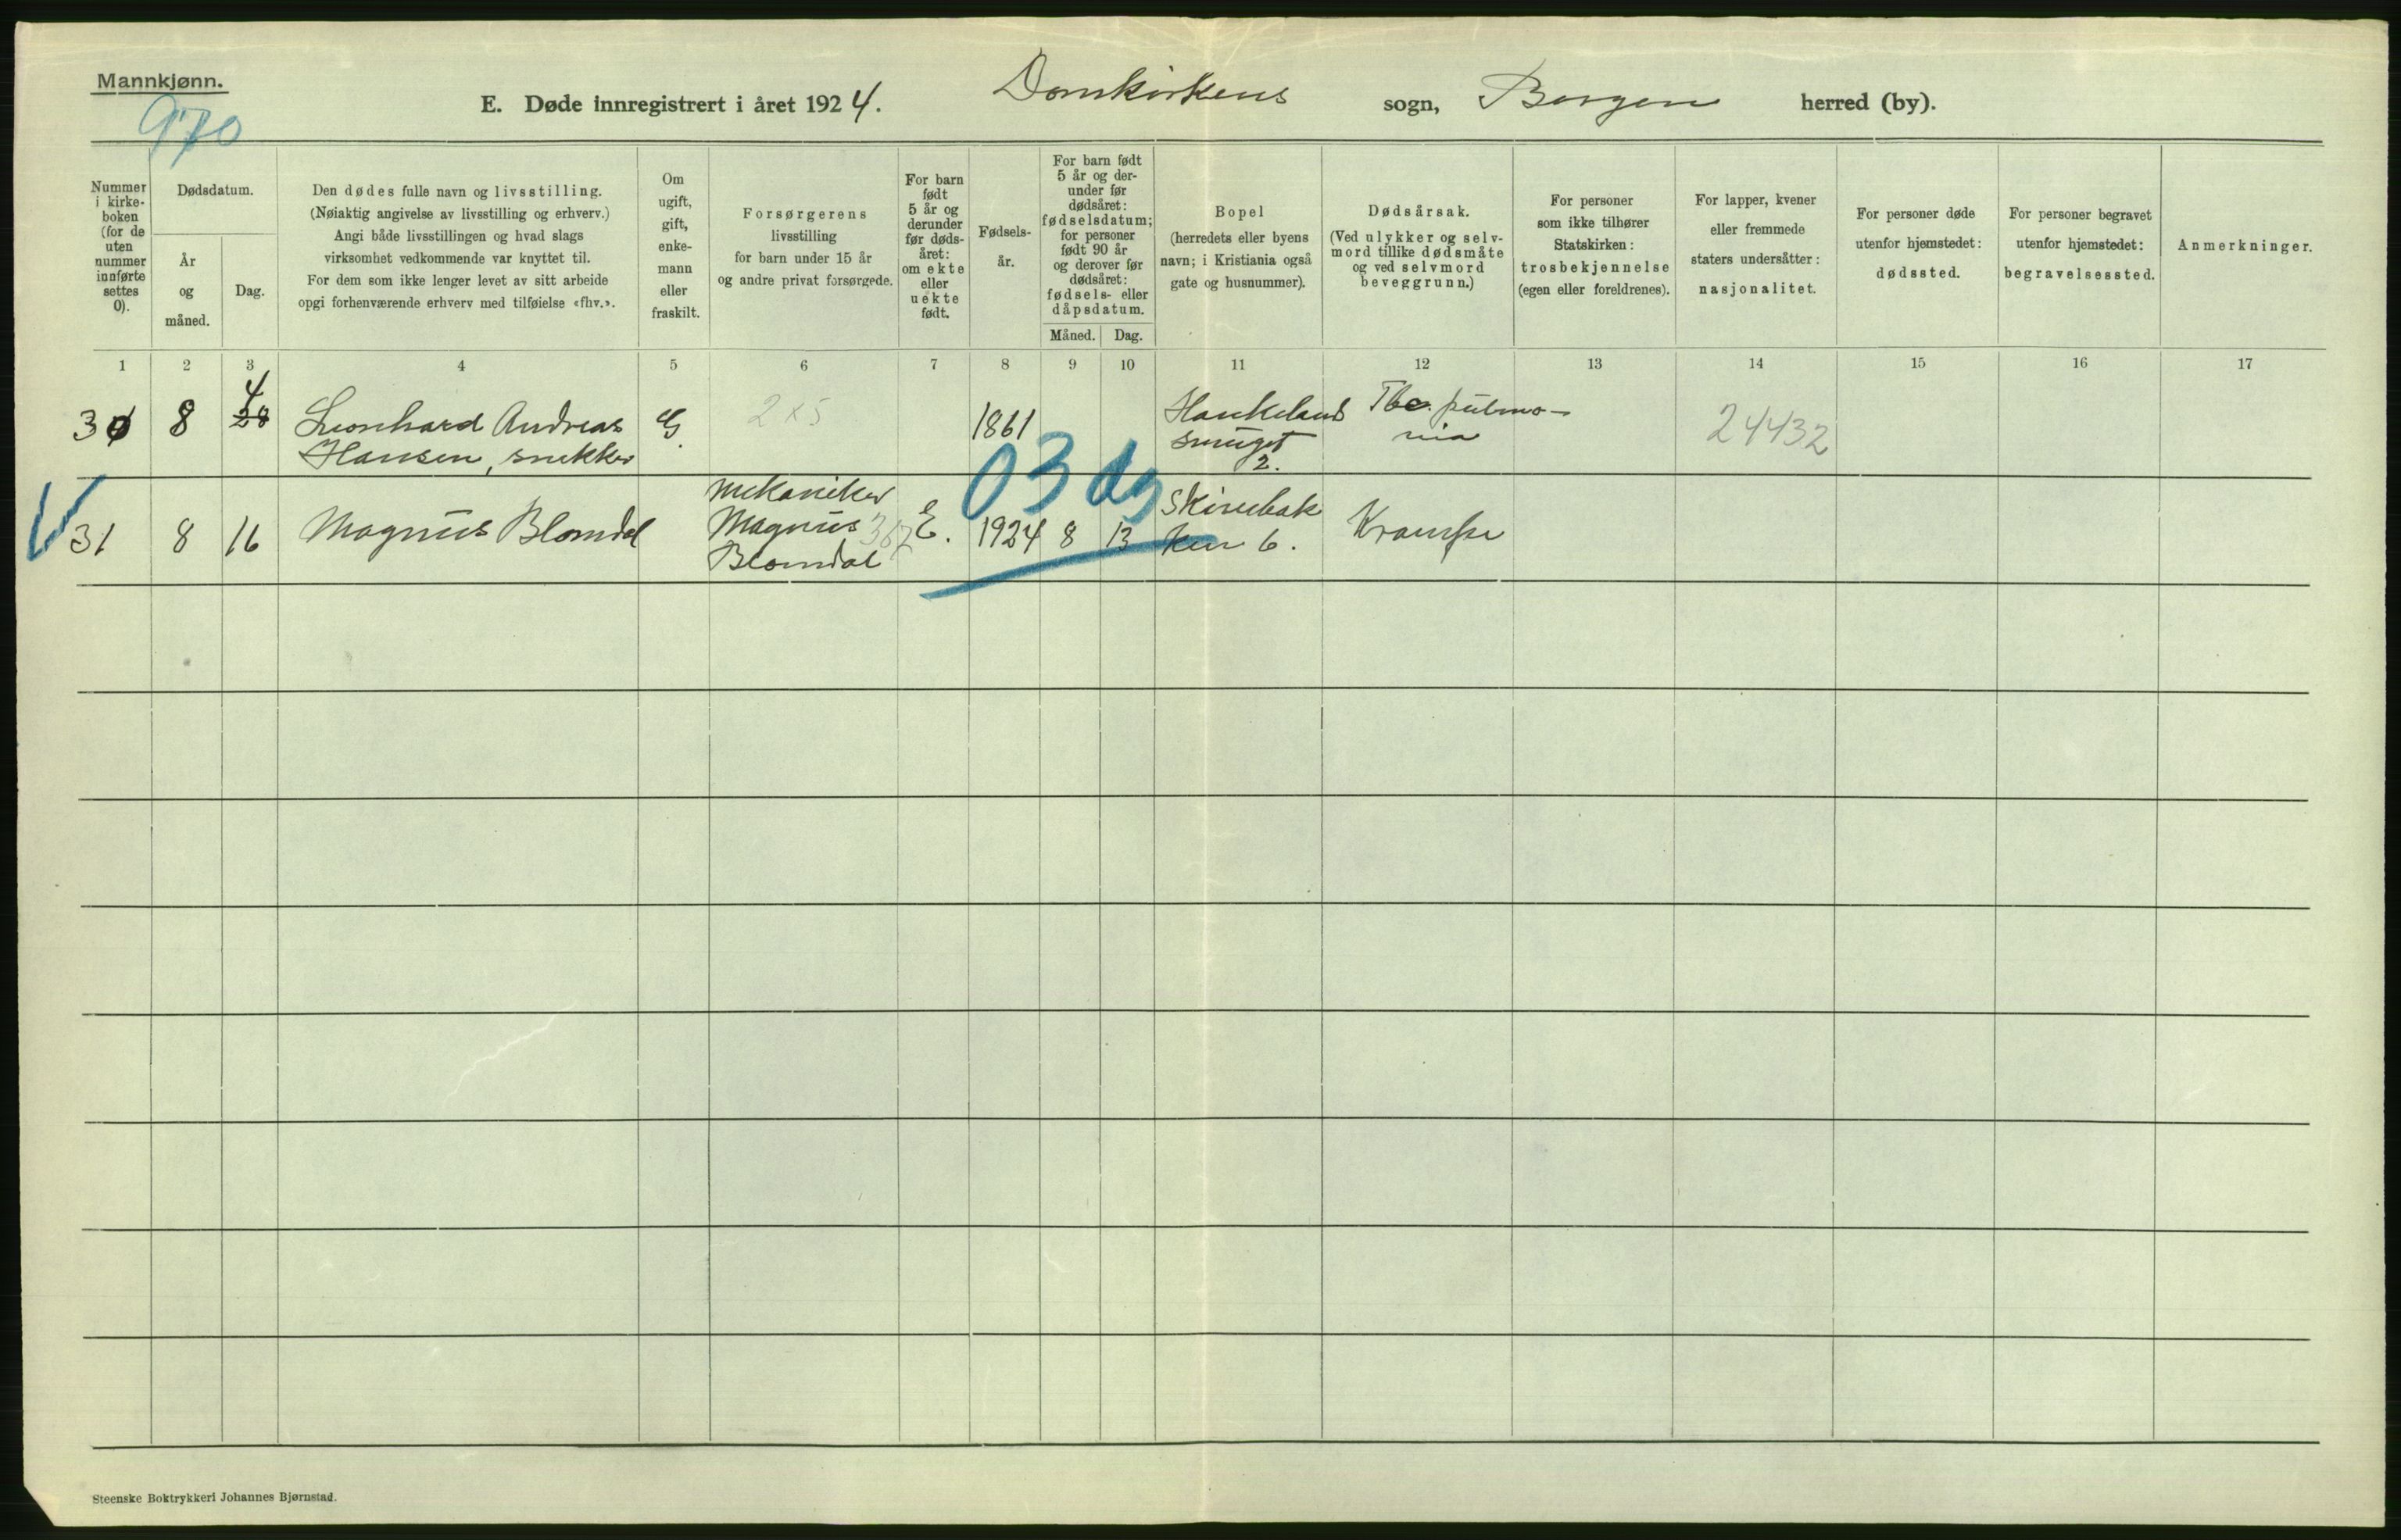 Mannkjønn.
970
E. Døde innregistrert i året 1924. Domkirkens sogn, Bergen herred (by).
Nummer i kirke-boken (for de uten nummer innførte settes 0).
Dødsdatum.
År og måned.
Dag.
Den dødes fulle navn og livsstilling.
(Nøiaktig angivelse av livsstilling og erhverv.)
Angi både livsstillingen og hvad slags
virksomhet vedkommende var knyttet til.
For dem som ikke lenger levet av sitt arbeide
opgi forhenværende erhverv med tilføielse «fhv.».
Om ugift, gift, enke-mann eller fraskilt.
Forsørgerens
livsstilling
for barn under 15 år
og andre privat forsørgede.
For barn født 5 år og derunder før døds-året: om ekte eller uekte født.
Fødsels-år.
For barn født 5 år og der-under før dødsåret: fødselsdatum; for personer født 90 år og derover før dødsåret: fødsels- eller dåpsdatum.
Måned. Dag.
Bopel
(herredets eller byens
navn; i Kristiania også
gate og husnummer).
Dødsårsak.
(Ved ulykker og selv-
mord tillike dødsmåte
og ved selvmord
beveggrunn.)
For personer
som ikke tilhører
Statskirken:
trosbekjennelse
(egen eller foreldrenes).
For lapper, kvener
eller fremmede
staters undersåtter:
nasjonalitet.
For personer døde
utenfor hjemstedet:
dødssted.
For personer begravet
utenfor hjemstedet:
begravelsessted.
Anmerkninger.
1 2 3 4 5 6 7 8 9 10 11 12 13 14 15 16 17
4
30 8 28 Leonhard Andreas G. 2x5 1861 Haukeland Tbc. pulmo- 24432
Hansen, snekker smuget nia
2.
03 dg
Mekaniker Skivebak
31 8 16 Magnus Blomdal Magnus 367 E. 1924 8 13 ken 6. Krampe
Blomdal
Steenske Boktrykkeri Johannes Bjørnstad.